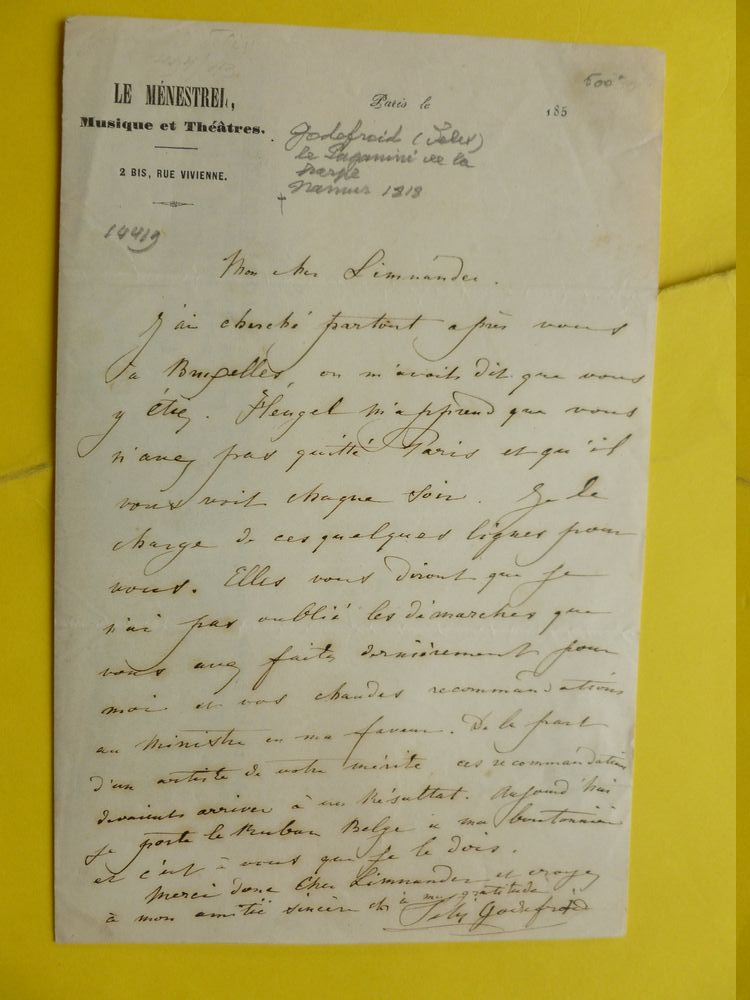 LE MÉNESTREL,
Musique et Théâtres.
2 BIS, RUE VIVIENNE.
Paris le 185
500
Godefroid (Felix)
le Paganini de la
harpe
Namur 1818
14419
Mon cher Limnander.
J'ai cherché partout après vous
à Bruxelles, on m'avait dit que vous
y étiez. Heugel m'apprend que vous
n'avez pas quitté Paris et qu'il
vous voit chaque soir. Je le
charge de ces quelques lignes pour
vous. Elles vous diront que je
n'ai pas oublié les démarches que
vous avez faites dernièrement pour
moi et vos chaudes recommandations
au Ministre en ma faveur. De la part
d'un artiste de votre mérite ces recommandations
devaient arriver à un Résultat. Aujourd'hui
je porte le Ruban Belge à ma boutonnière
et c'est à vous que je le dois.
Merci donc Cher Limnander et croyez
à mon amitié sincère et à ma gratitude
Felix Godefroid